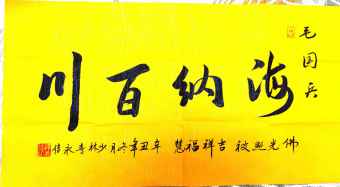 毛国兵
海纳百川
佛光照被吉祥福慧
辛丑年冬月少林寺永信